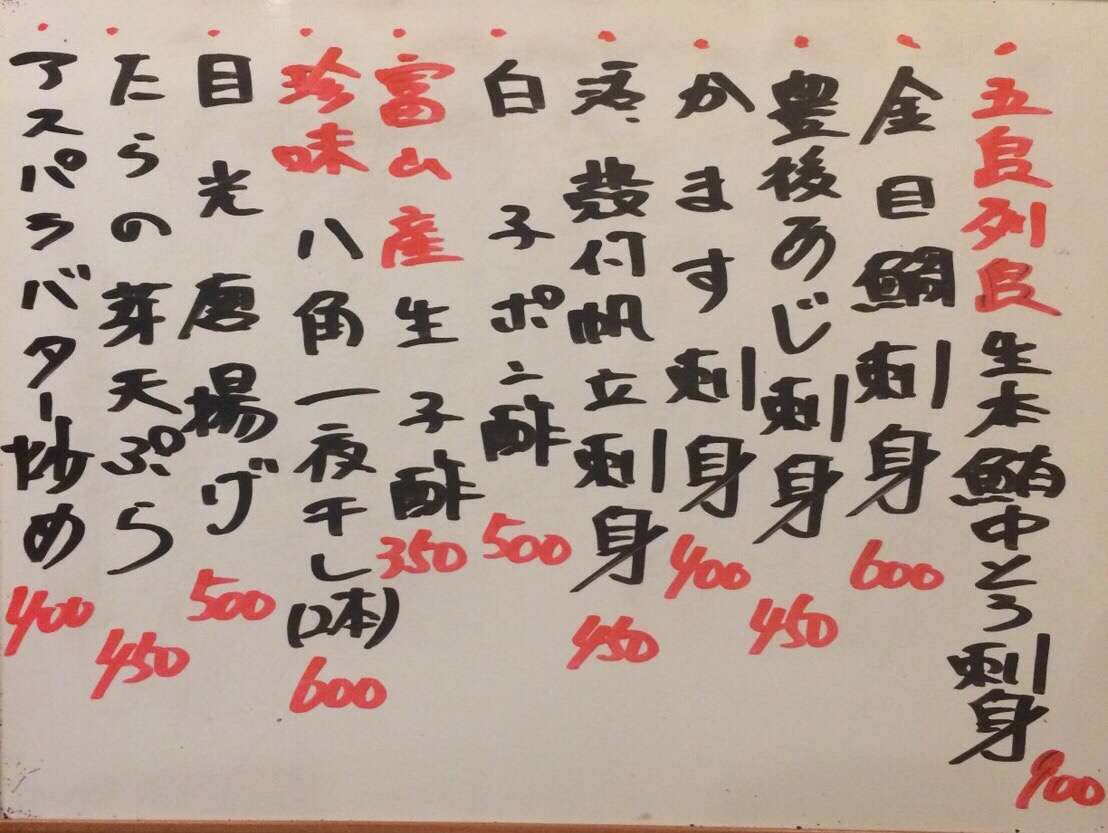 ・五島列島生本鮪中とろ刺身900
・金目鯛刺身600
・豊後あじ刺身450
・かます刺身400
・活殻付帆立刺身450
・白子ポン酢500
・富山産生子酢350
・珍味八角一夜干し(2本)600
・目光唐揚げ500
・たらの芽天ぷら450
・アスパラバター炒め400